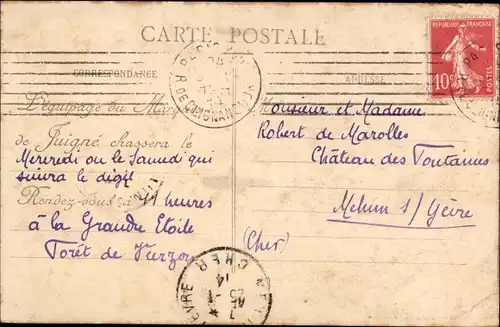 CARTE POSTALE
CORRESPONDANCE
ADRESSE
L'équipage du Marquis
de Juigné chassera le
Mercredi ou le Samedi qui
suivra le dégel
Rendez-vous à 11 heures
à la Grande Etoile
Forêt de Vierzon
Monsieur et Madame
Robert de Marolles
Château des Fontaines
Mehun s/ Yèvre
(Cher)
REPUBLIQUE FRANÇAISE
10
POSTES
R. DE CLIGNANCOURT
CHER
7
25 -1
14